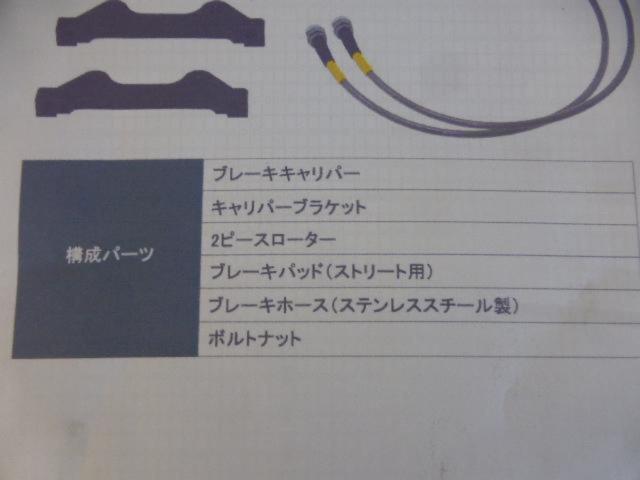 構成パーツ
ブレーキキャリパー
キャリパーブラケット
2ピースローター
ブレーキパッド(ストリート用)
ブレーキホース(ステンレススチール製)
ボルトナット